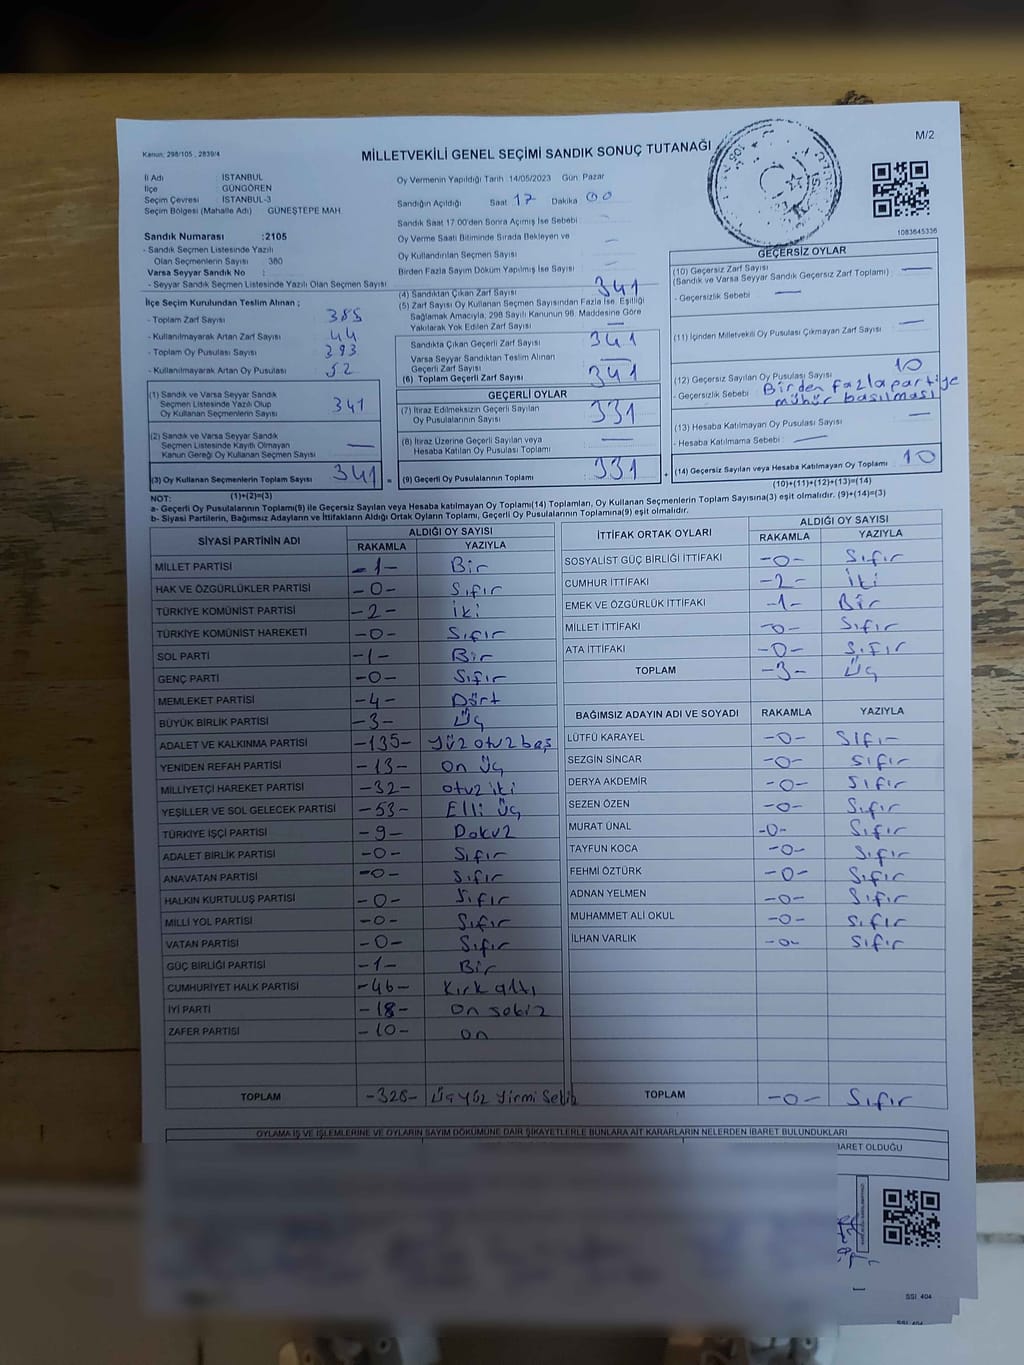 Kanun; 298/105 , 2839/4
MİLLETVEKİLİ GENEL SEÇİMİ SANDIK SONUÇ TUTANAĞI
M/2
İl Adı : İSTANBUL
İlçe : GÜNGÖREN
Seçim Çevresi : İSTANBUL-3
Seçim Bölgesi (Mahalle Adı) GÜNEŞTEPE MAH
Sandık Numarası :2105
- Sandık Seçmen Listesinde Yazılı
Olan Seçmenlerin Sayısı 380
Varsa Seyyar Sandık No :
- Seyyar Sandık Seçmen Listesinde Yazılı Olan Seçmen Sayısı:
İlçe Seçim Kurulundan Teslim Alınan ;
- Toplam Zarf Sayısı 385
- Kullanılmayarak Artan Zarf Sayısı 44
- Toplam Oy Pusulası Sayısı 393
- Kullanılmayarak Artan Oy Pusulası 52
(1) Sandık ve Varsa Seyyar Sandık
Seçmen Listesinde Yazılı Olup
Oy Kullanan Seçmenlerin Sayısı 341
(2) Sandık ve Varsa Seyyar Sandık
Seçmen Listesinde Kayıtlı Olmayan
Kanun Gereği Oy Kullanan Seçmen Sayısı —
(3) Oy Kullanan Seçmenlerin Toplam Sayısı 341
(1)+(2)=(3)
Oy Vermenin Yapıldığı Tarih 14/05/2023 Gün: Pazar
Sandığın Açıldığı Saat 17 Dakika 00
Sandık Saat 17.00'den Sonra Açılmış İse Sebebi
Oy Verme Saati Bitiminde Sırada Bekleyen ve
Oy Kullandırılan Seçmen Sayısı —
Birden Fazla Sayım Döküm Yapılmış İse Sayısı —
(4) Sandıktan Çıkan Zarf Sayısı 341
(5) Zarf Sayısı Oy Kullanan Seçmen Sayısından Fazla İse, Eşitliği
Sağlamak Amacıyla; 298 Sayılı Kanunun 98. Maddesine Göre
Yakılarak Yok Edilen Zarf Sayısı —
Sandıkta Çıkan Geçerli Zarf Sayısı 341
Varsa Seyyar Sandıktan Teslim Alınan
Geçerli Zarf Sayısı —
(6) Toplam Geçerli Zarf Sayısı 341
GEÇERLİ OYLAR
(7) İtiraz Edilmeksizin Geçerli Sayılan
Oy Pusulalarının Sayısı 331
(8) İtiraz Üzerine Geçerli Sayılan veya
Hesaba Katılan Oy Pusulası Toplamı —
(9) Geçerli Oy Pusulalarının Toplamı 331
1083645336
GEÇERSİZ OYLAR
(10) Geçersiz Zarf Sayısı —
(Sandık ve Varsa Seyyar Sandık Geçersiz Zarf Toplamı)
- Geçersizlik Sebebi —
(11) İçinden Milletvekili Oy Pusulası Çıkmayan Zarf Sayısı —
(12) Geçersiz Sayılan Oy Pusulası Sayısı 10
- Geçersizlik Sebebi Birden fazla partiye
mühür basılması
(13) Hesaba Katılmayan Oy Pusulası Sayısı —
- Hesaba Katılmama Sebebi —
(14) Geçersiz Sayılan veya Hesaba Katılmayan Oy Toplamı 10
(10)+(11)+(12)+(13)=(14)
NOT:
a- Geçerli Oy Pusulalarının Toplamı(9) ile Geçersiz Sayılan veya Hesaba Katılmayan Oy Toplamı(14) Toplamları, Oy Kullanan Seçmenlerin Toplam Sayısına(3) eşit olmalıdır. (9)+(14)=(3)
b- Siyasi Partilerin, Bağımsız Adayların ve İttifakların Aldığı Ortak Oyların Toplamı, Geçerli Oy Pusulalarının Toplamına(9) eşit olmalıdır.
SİYASİ PARTİNİN ADI ALDIĞI OY SAYISI
RAKAMLA YAZIYLA
MİLLET PARTİSİ -1- Bir
HAK VE ÖZGÜRLÜKLER PARTİSİ -0- Sıfır
TÜRKİYE KOMÜNİST PARTİSİ -2- iki
TÜRKİYE KOMÜNİST HAREKETİ -0- Sıfır
SOL PARTİ -1- Bir
GENÇ PARTİ -0- Sıfır
MEMLEKET PARTİSİ -4- Dört
BÜYÜK BİRLİK PARTİSİ -3- Üç
ADALET VE KALKINMA PARTİSİ -135- Yüz otuz beş
YENİDEN REFAH PARTİSİ -13- On üç
MİLLİYETÇİ HAREKET PARTİSİ -32- otuz iki
YEŞİLLER VE SOL GELECEK PARTİSİ -53- Elli üç
TÜRKİYE İŞÇİ PARTİSİ -9- Dokuz
ADALET BİRLİK PARTİSİ -0- Sıfır
ANAVATAN PARTİSİ -0- Sıfır
HALKIN KURTULUŞ PARTİSİ -0- Sıfır
MİLLİ YOL PARTİSİ -0- Sıfır
VATAN PARTİSİ -0- Sıfır
GÜÇ BİRLİĞİ PARTİSİ -1- Bir
CUMHURİYET HALK PARTİSİ -46- Kırk altı
İYİ PARTİ -18- On sekiz
ZAFER PARTİSİ -10- on
TOPLAM -328- Üç yüz yirmi Sekiz
İTTİFAK ORTAK OYLARI ALDIĞI OY SAYISI
RAKAMLA YAZIYLA
SOSYALİST GÜÇ BİRLİĞİ İTTİFAKI -0- Sıfır
CUMHUR İTTİFAKI -2- İki
EMEK VE ÖZGÜRLÜK İTTİFAKI -1- Bir
MİLLET İTTİFAKI -0- Sıfır
ATA İTTİFAKI -0- Sıfır
TOPLAM -3- Üç
BAĞIMSIZ ADAYIN ADI VE SOYADI RAKAMLA YAZIYLA
LÜTFÜ KARAYEL -0- Sıfır
SEZGİN SİNCAR -0- Sıfır
DERYA AKDEMİR -0- Sıfır
SEZEN ÖZEN -0- Sıfır
MURAT ÜNAL -0- Sıfır
TAYFUN KOCA -0- Sıfır
FEHMİ ÖZTÜRK -0- Sıfır
ADNAN YELMEN -0- Sıfır
MUHAMMET ALİ OKUL -0- Sıfır
İLHAN VARLIK -0- Sıfır
TOPLAM -0- Sıfır
OYLAMA İŞ VE İŞLEMLERİNE VE OYLARIN SAYIM DÖKÜMÜNE DAİR ŞİKAYETLERLE BUNLARA AİT KARARLARIN NELERDEN İBARET BULUNDUKLARI
İBARET OLDUĞU
SSI 404
SSI 404